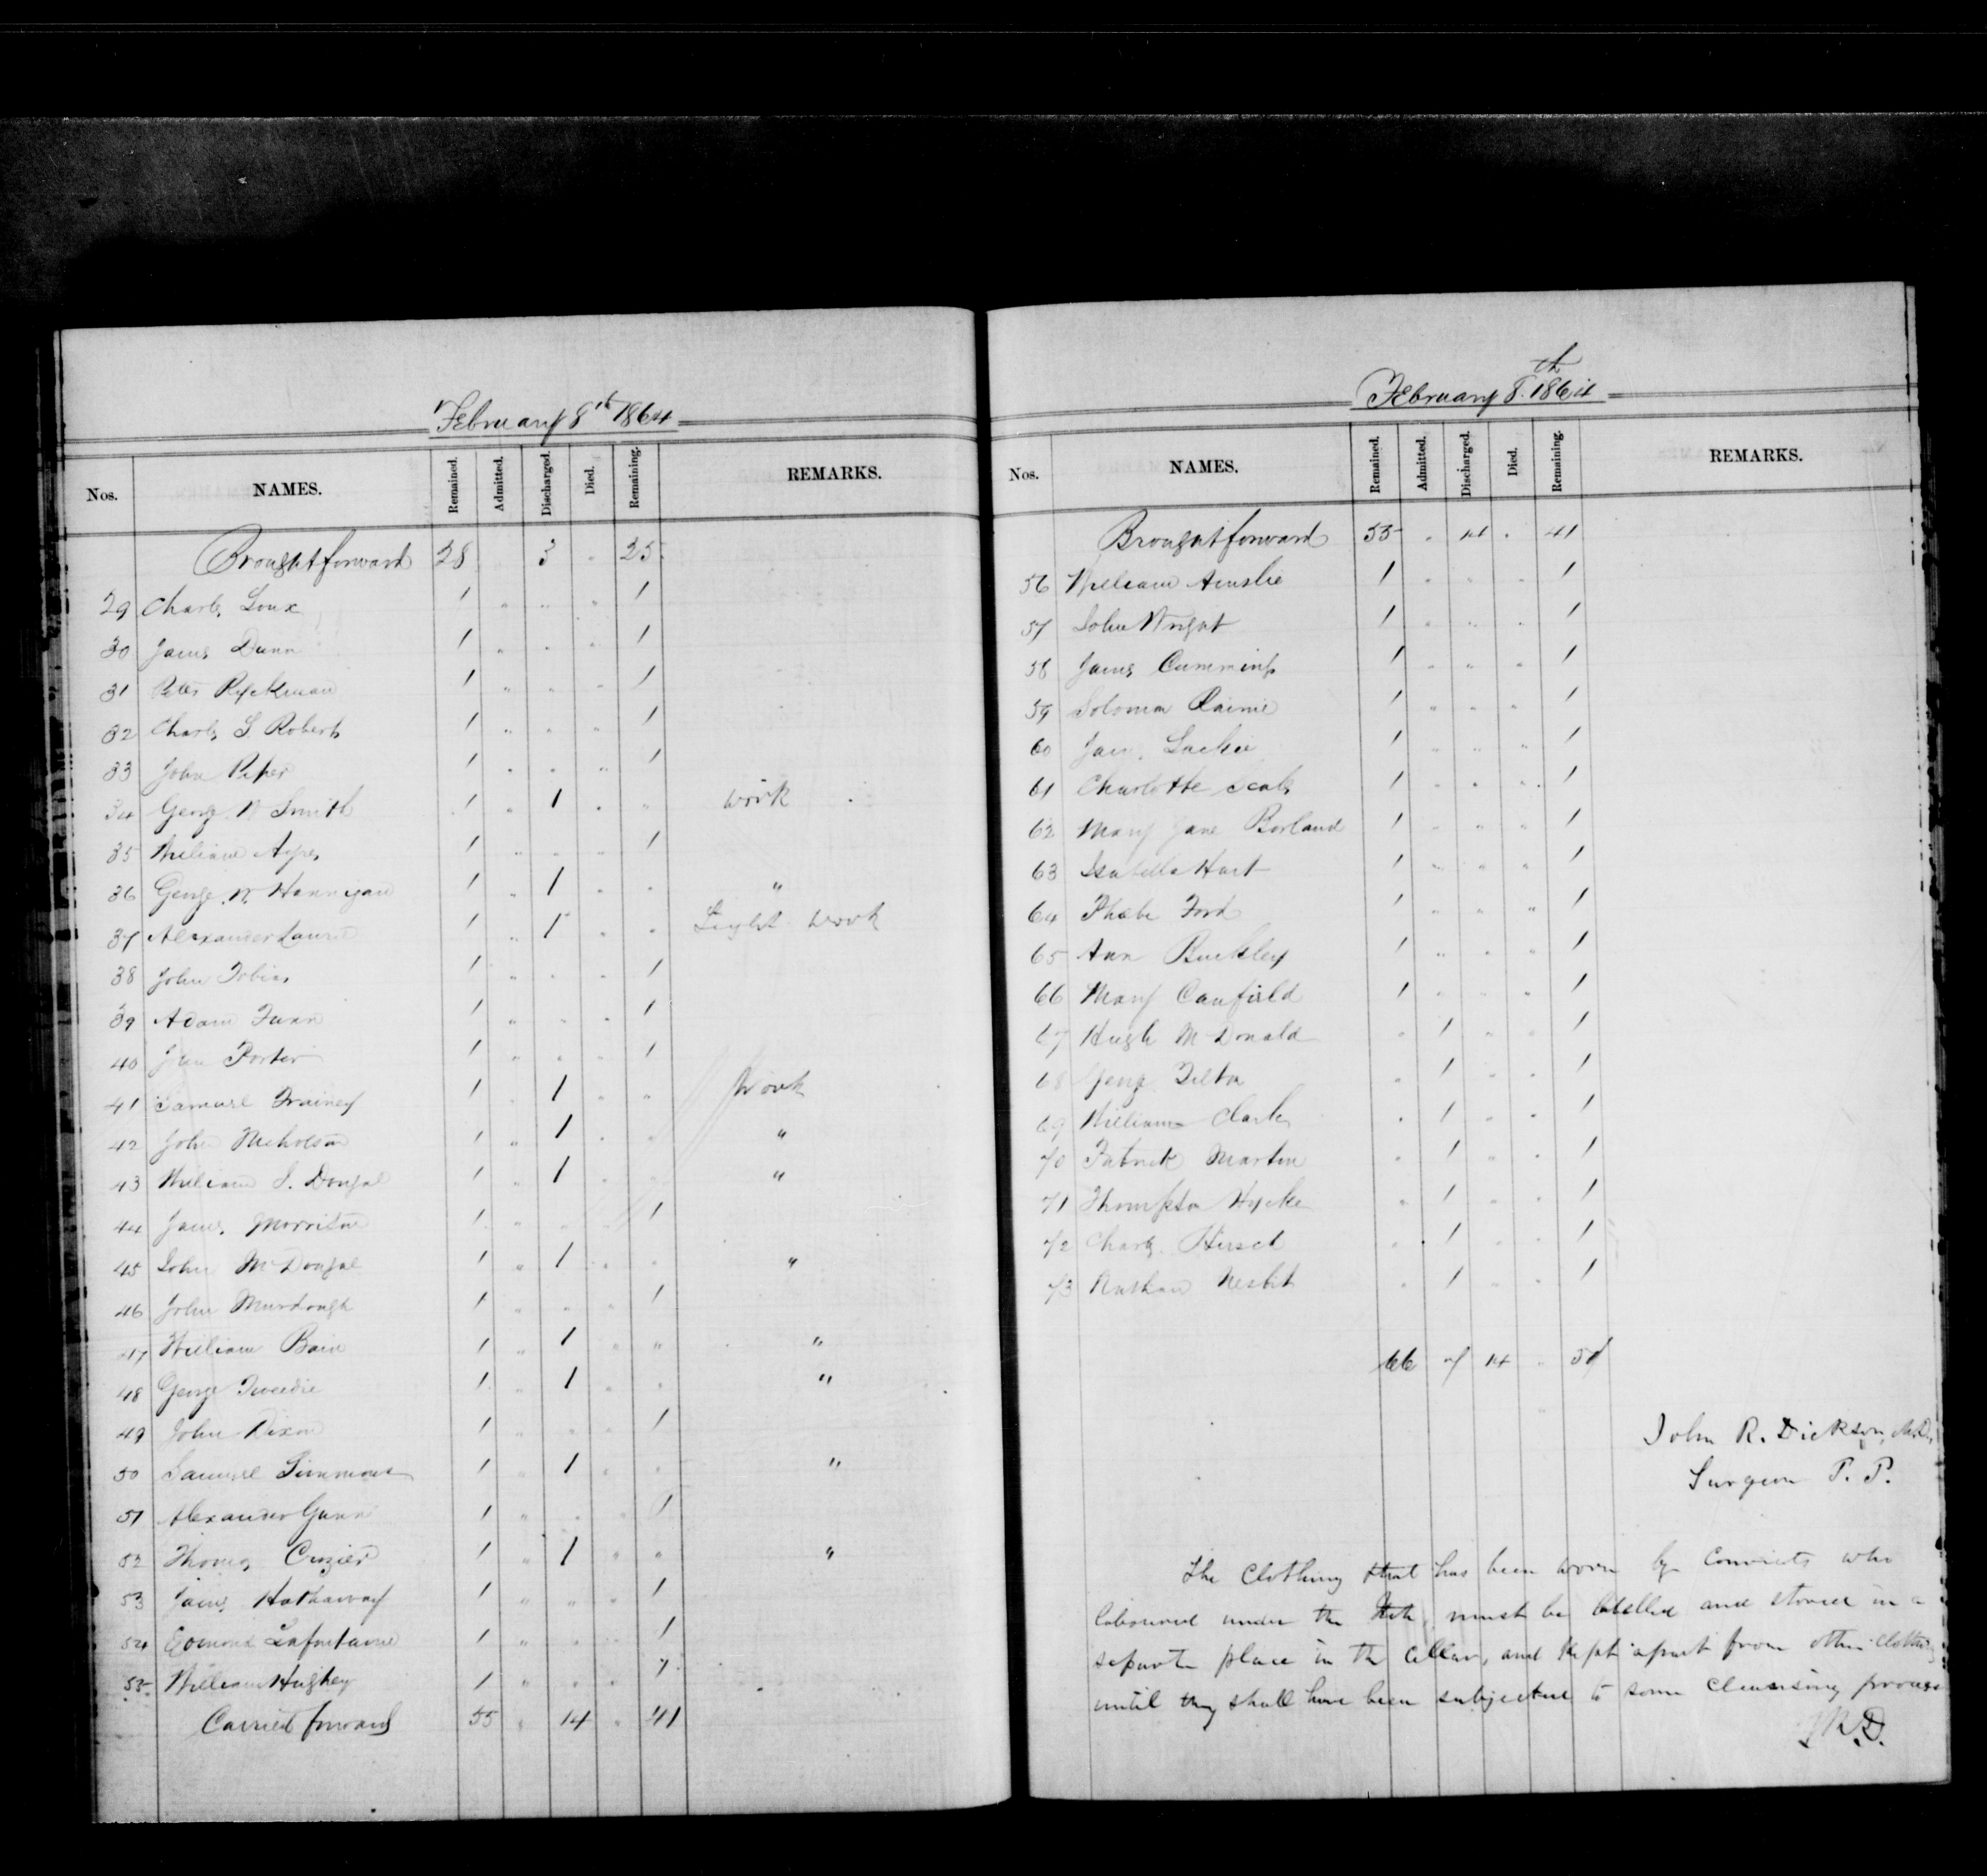 February 8th 1864
Nos. NAMES. Remained. Admitted. Discharged. Died. Remaining. REMARKS.
Brought forward 28 3 " 25
29 Charles Loux 1 " " " 1
30 James Dunn 1 " " " 1
31 Peter Ryckman 1 " " " 1
32 Charles S. Roberts 1 " " " 1
33 John Piper 1 " " " 1
34 George W Smith 1 " 1 " " work
35 William Ayres 1 " " " 1
36 George W. Hannigan 1 " 1 " " "
37 Alexander Laurie 1 " 1 " " Light work
38 John Tobias 1 " " " 1
39 Adam Funn 1 " " " 1
40 Porter 1 " " " 1
41 Samuel Trainey 1 " 1 " " Work
42 John Nicholson 1 " 1 " " "
43 William S. Dougal 1 " 1 " " "
44 James Morrison 1 " " " 1
45 John McDougal 1 " 1 " " "
46 John Murdough 1 " " " 1
47 William Bain 1 " 1 " " "
48 George Tweedie 1 " 1 " " "
49 John Dixon 1 " " " 1
50 Samuel Simmons 1 " 1 " " "
51 Alexander Gunn 1 " " " 1
52 Thomas Crozier 1 " 1 " " "
53 James Hathaway 1 " " " 1
54 Edmond Lafontaine 1 " " " 1
55 William Hughey 1 " " " 1
Carried forward 55 " 14 " 41
February 8th 1864
Nos. NAMES. Remained. Admitted. Discharged. Died. Remaining. REMARKS.
Brought forward 55 " 14 " 41
56 William Ainslie 1 " " " 1
57 John Wright 1 " " " 1
58 James Cummings 1 " " " 1
59 Solomon 1 " " " 1
60 Lackie 1 " " " 1
61 Charlotte Seals 1 " " " 1
62 Mary Jane Borland 1 " " " 1
63 Isabella Hart 1 " " " 1
64 Phœbe Ford 1 " " " 1
65 Ann Buckley 1 " " " 1
66 Mary Canfield 1 " " " 1
67 Hugh McDonald " 1 " " 1
68 George Tilton " 1 " " 1
69 William Clark " 1 " " 1
70 Patrick Martin " 1 " " 1
71 Thompson Hycke " 1 " " 1
72 Charles Hirsch " 1 " " 1
73 Nathan Nesbit " 1 " " 1
66 7 14 " 59
John R. Dickson, M.D.,
Surgeon P. P.
The clothing that has been worn by Convicts who
laboured under the Itch, must be labelled and stored in a
separate place in the cellar, and kept apart from other clothing
until they shall have been subjected to some cleansing process
J.R.D.